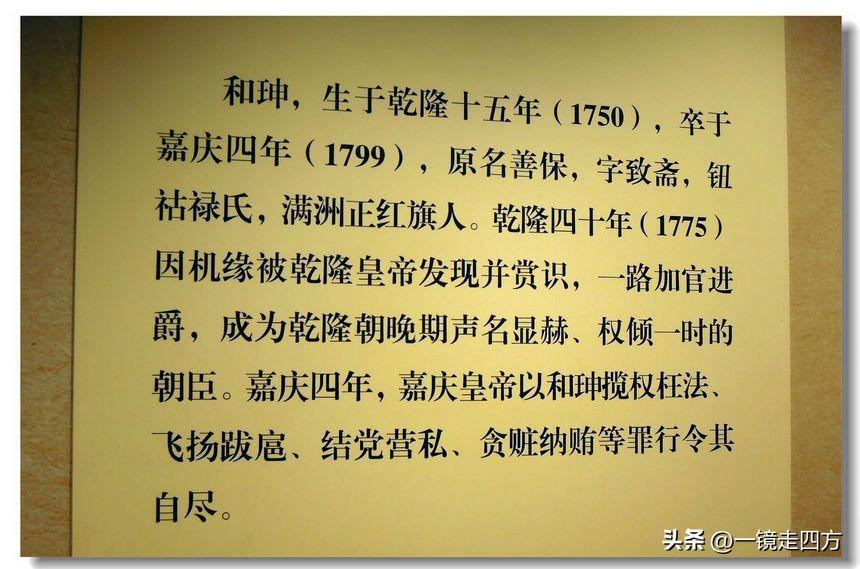 和珅，生于乾隆十五年（1750），卒于
嘉庆四年（1799），原名善保，字致斋，钮
祜禄氏，满洲正红旗人。乾隆四十年（1775）
因机缘被乾隆皇帝发现并赏识，一路加官进
爵，成为乾隆朝晚期声名显赫、权倾一时的
朝臣。嘉庆四年，嘉庆皇帝以和珅揽权枉法、
飞扬跋扈、结党营私、贪赃纳贿等罪行令其
自尽。
头条 @一镜走四方